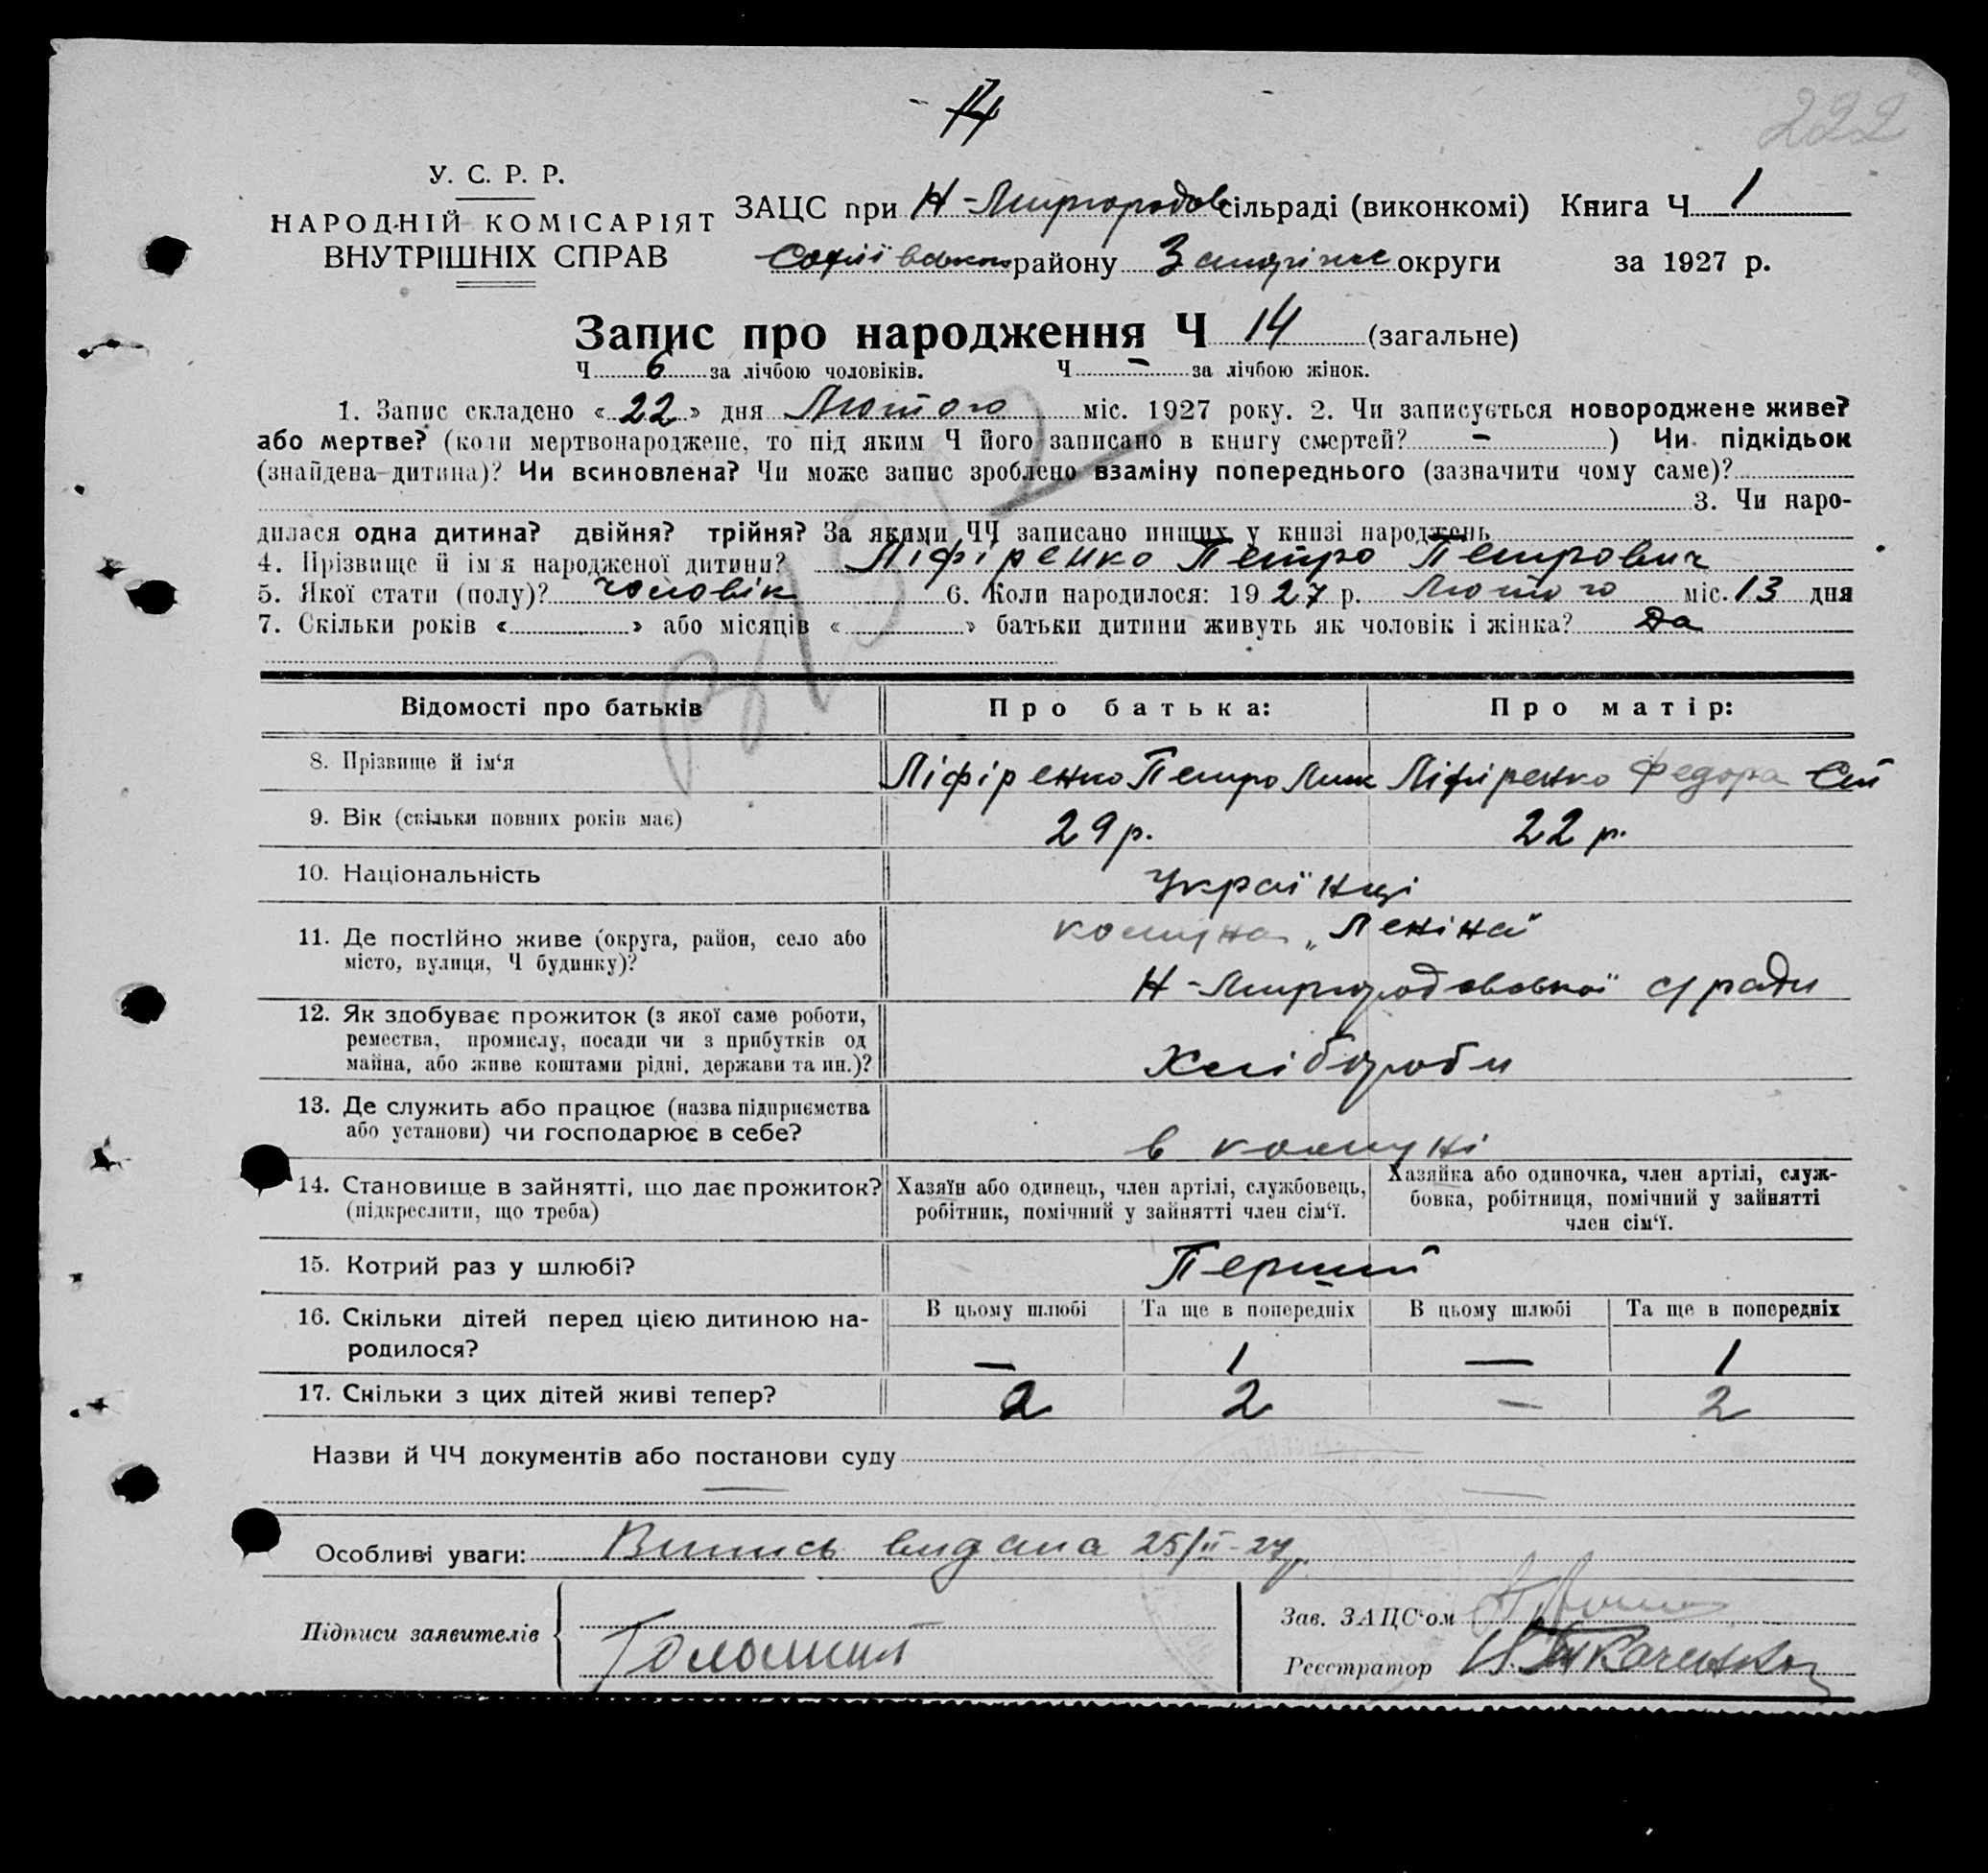 14
222
У. С. Р. Р.
НАРОДНІЙ КОМІСАРІЯТ
ВНУТРІШНІХ СПРАВ
ЗАЦС при Н-Миргородов сільраді (виконкомі) Книга Ч 1
Софіївського району Запоріжс округи за 1927 р.
Запис про народження Ч 14 (загальне)
Ч 6 за лічбою чоловіків. Ч - за лічбою жінок.
1. Запис складено «22» дня Лютого міс. 1927 року. 2. Чи записується новороджене живе?
або мертве? (коли мертвонароджене, то під яким Ч його записано в книгу смертей? - ) Чи підкідьок
(знайдена дитина)? Чи всиновлена? Чи може запис зроблено взаміну попереднього (зазначити чому саме)?
3. Чи наро-
дилася одна дитина? двійня? трійня? За якими ЧЧ записано инших у книзі народжень
4. Прізвище й ім'я народженої дитини? Ліфіренко Петро Петрович
5. Якої стати (полу)? Чоловік 6. Коли народилося: 1927 р. Лютого міс. 13 дня
7. Скільки років « » або місяців « » батьки дитини живуть як чоловік і жінка? Да
Відомості про батьків Про батька: Про матір:
8. Прізвище й ім‘я Ліфіренко Петро Мик Ліфіренко Федора
9. Вік (скільки повних років має) 29 р. 22 р.
10. Національність Українці
11. Де постійно живе (округа, район, село або комуна „Леніна"
місто, вулиця, Ч будинку)? Н-Миргородовської с/ради
12. Як здобуває прожиток (з якої саме роботи,
ремества, промислу, посади чи з прибутків од
майна, або живе коштами рідні, держави та ин.)? Хлібороби
13. Де служить або працює (назва підприємства
або установи) чи господарює в себе? в комуні
14. Становище в зайнятті, що дає прожиток? Хазяїн або одинець, член артілі, службовець, Хазяйка або одиночка, член артілі, служ-
(підкреслити, що треба) робітник, помічний у зайнятті член сім‘ї. бовка, робітниця, помічний у зайнятті
член сім‘ї.
15. Котрий раз у шлюбі? Перший
16. Скільки дітей перед цією дитиною на- В цьому шлюбі Та ще в попередніх В цьому шлюбі Та ще в попередніх
родилося? — 1 — 1
17. Скільки з цих дітей живі тепер? 2 2 — 2
Назви й ЧЧ документів або постанови суду
Особливі уваги: Випись видана 25/II-27р.
Підписи заявителів
Зав. ЗАЦС‘ом
Реєстратор Ткаченко